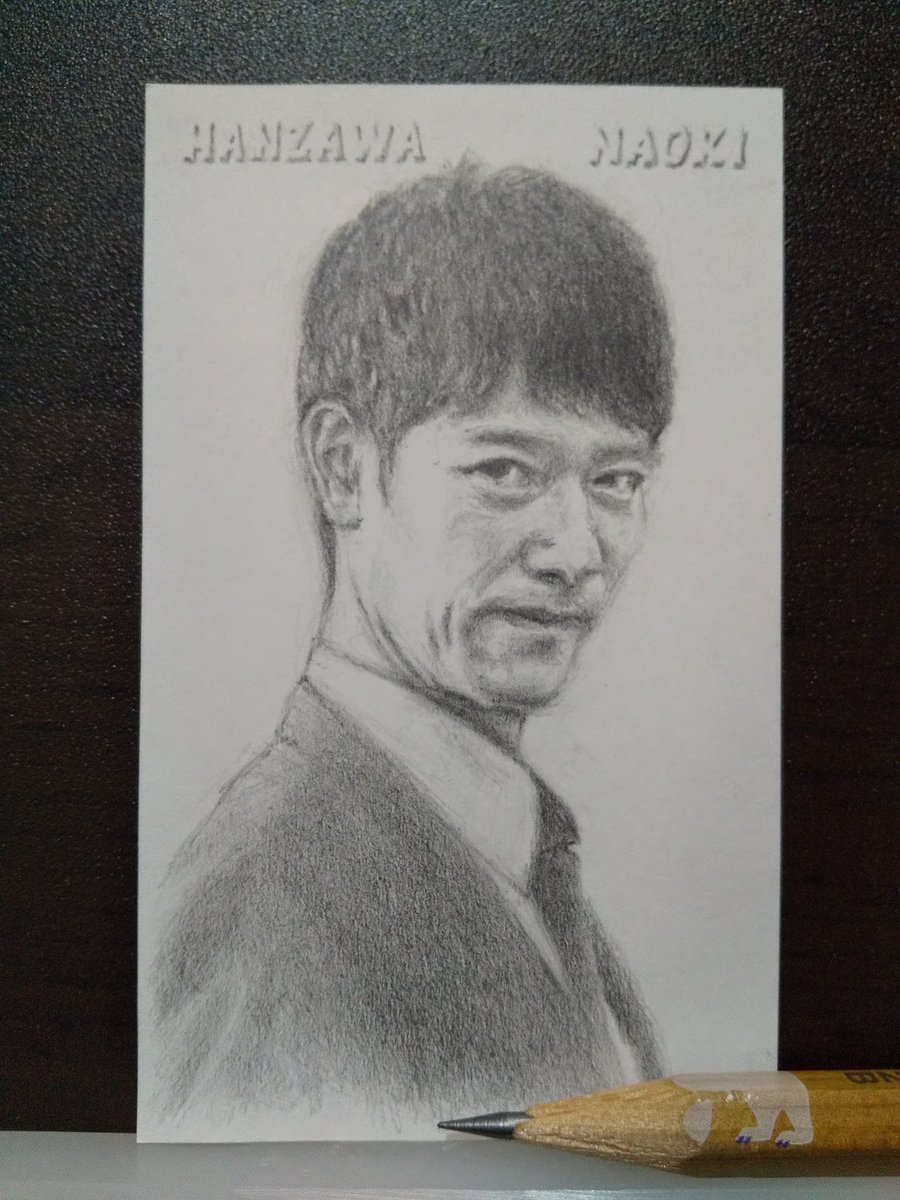 HANZAWA NAOKI